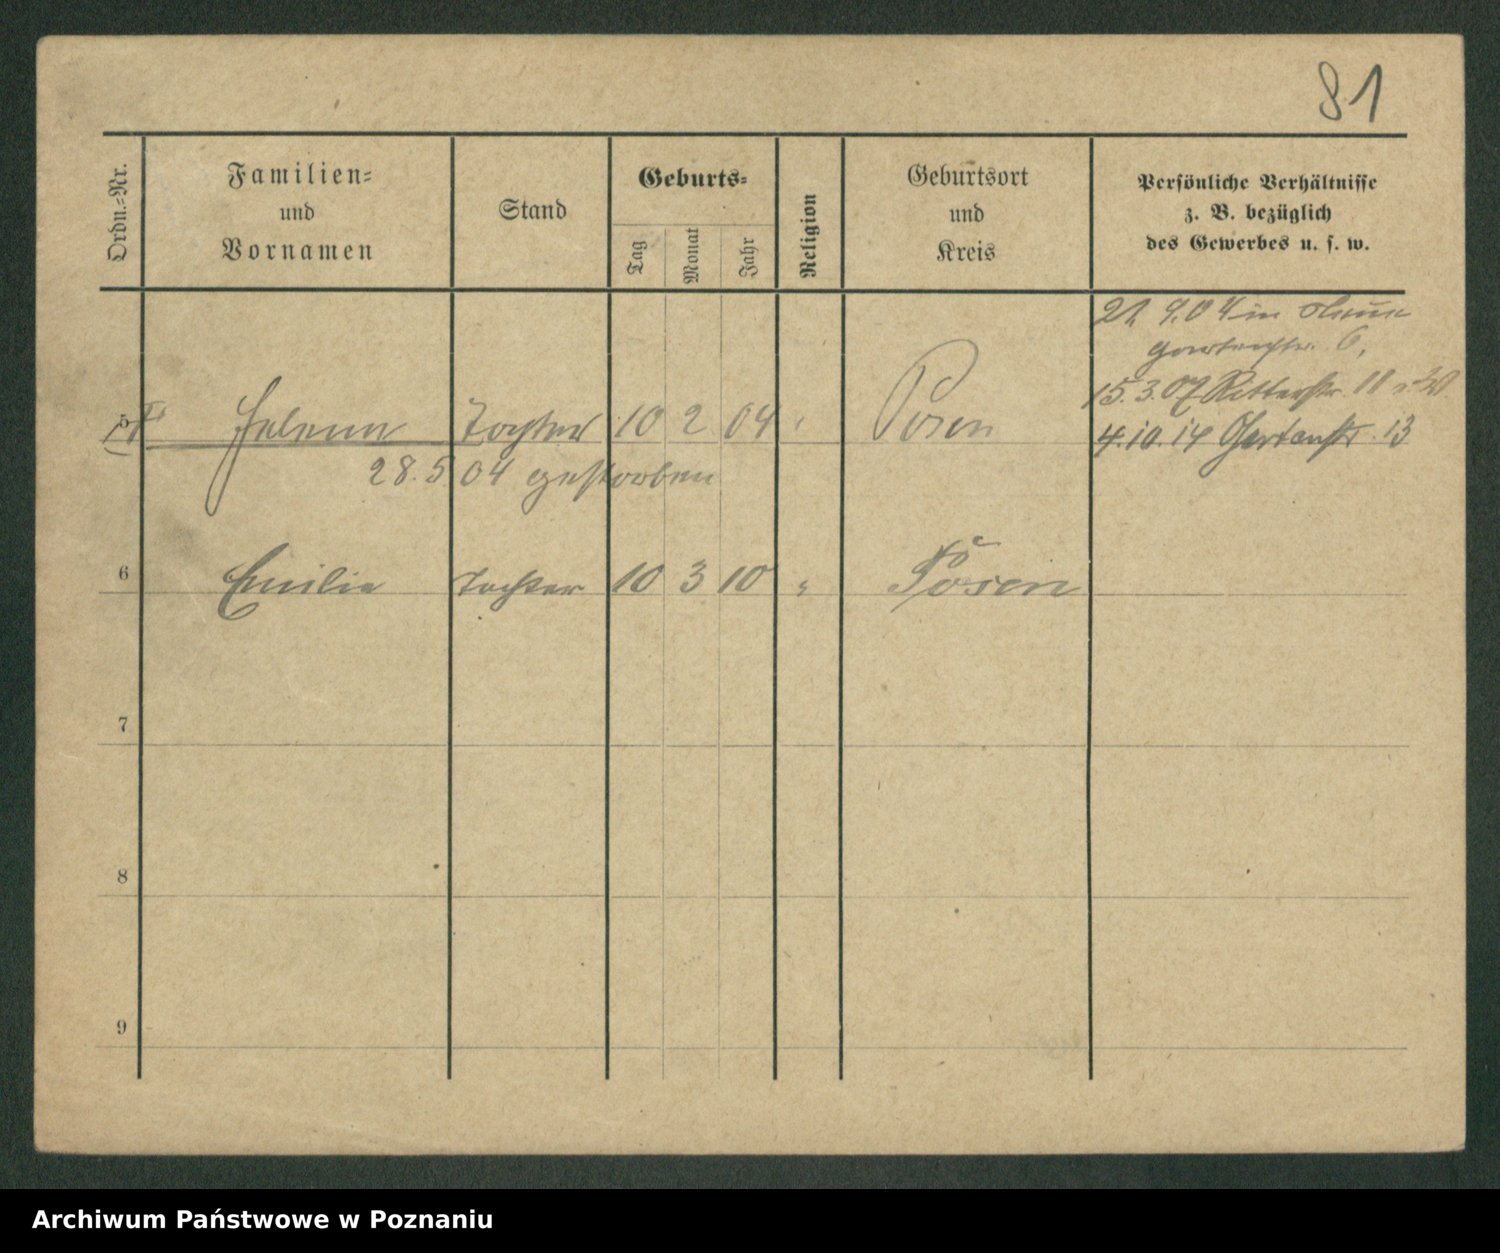 81
Ordn.=Nr.
Familien=
und
Vornamen
Stand
Geburts=
Tag
Monat
Jahr
Religion
Geburtsort
und
Kreis
Persönliche Verhältnisse
z. B. bezüglich
des Gewerbes u. s. w.
21. 9.04 in
Gartenstr. 6,
15.3.07 Ritterstr. 11
5 Helene Tochter 10 2 04 Posen 4.10.14 Gartenstr. 13
28.5.04 gestorben
6 Emilie Tochter 10 3 10 " Posen
7
8
9
Archiwum Państwowe w Poznaniu